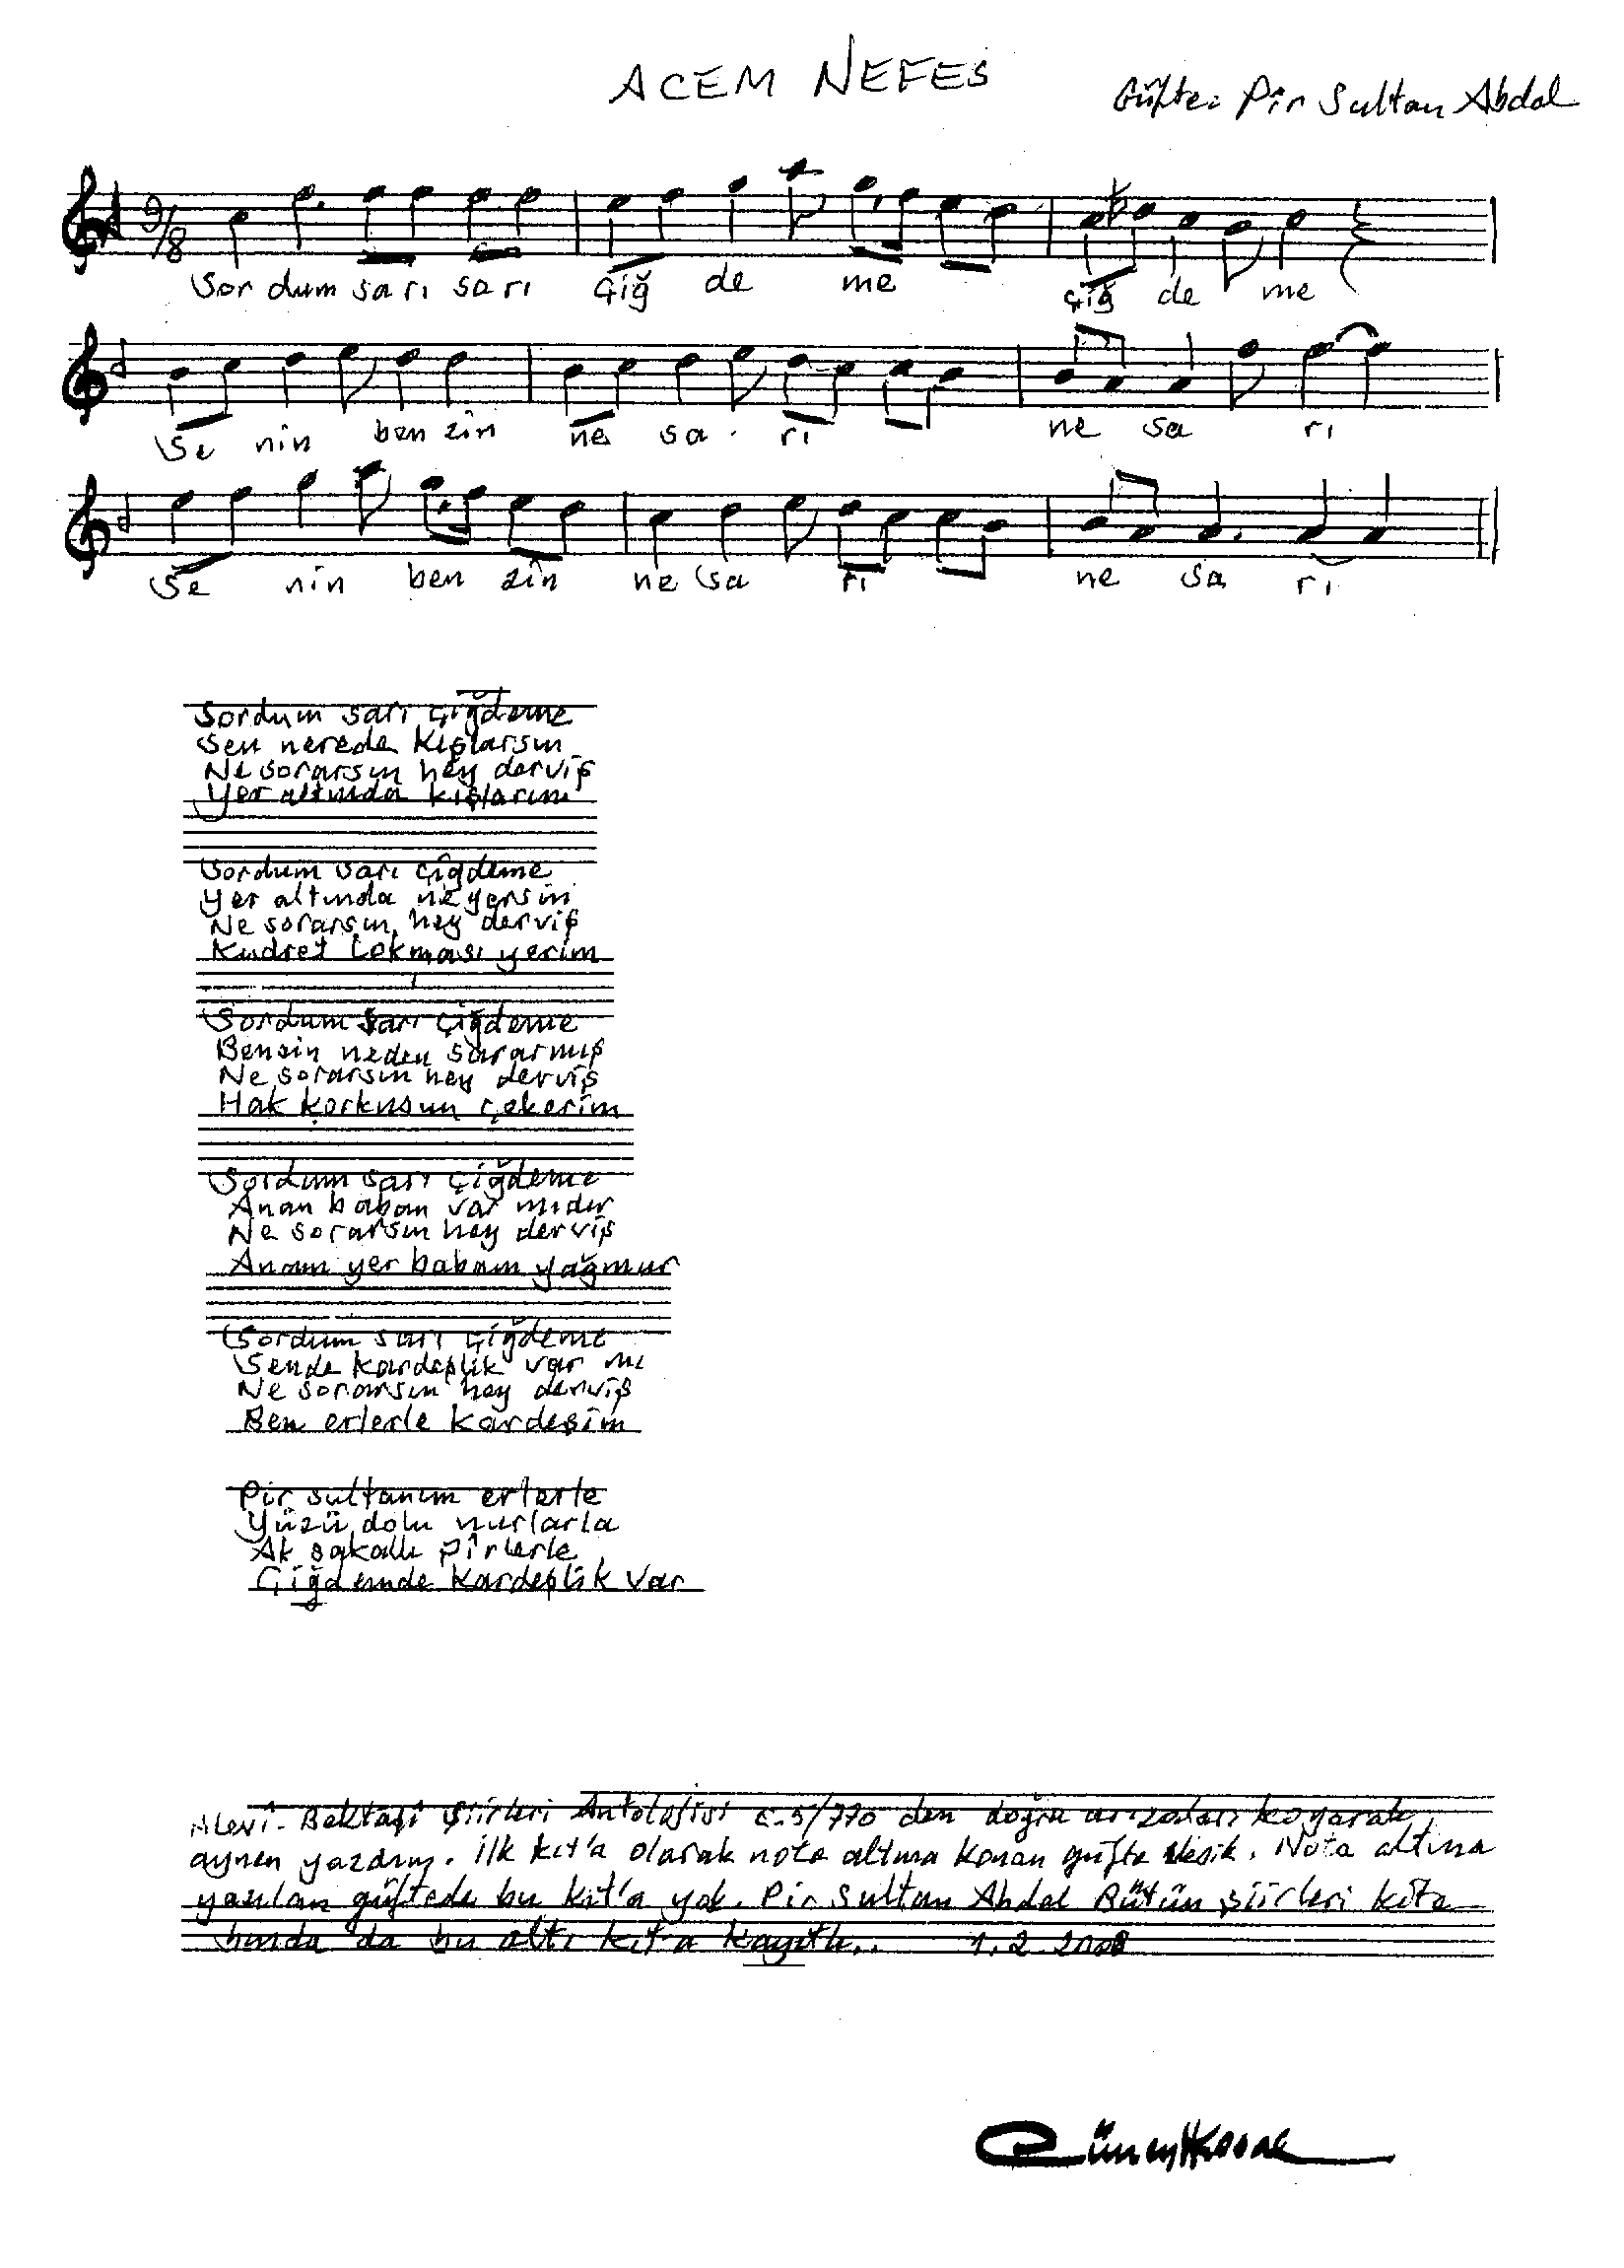 ACEM NEFES
Güfte: Pîr Sultan Abdal
9/8
Sor dum sa rı sa rı çiğ de me çiğ de me
Se nin ben zin ne sa rı ne sa rı
Se nin ben zin ne sa rı ne sa rı
Sordum sarı çiğdeme
Sen nerede kışlarsın
Ne sorarsın hey derviş
Yer altında kışlarım
Sordum sarı çiğdeme
Yer altında ne yersin
Ne sorarsın hey derviş
Kudret lokması yerim
Sordum sarı çiğdeme
Benzin neden sararmış
Ne sorarsın hey derviş
Hak korkusun çekerim
Sordum sarı çiğdeme
Anan baban var mıdır
Ne sorarsın hey derviş
Anam yer babam yağmur
Sordum sarı çiğdeme
Sende kardeşlik var mı
Ne sorarsın hey derviş
Ben erlerle kardeşim
Pir sultanım erlerle
Yüzü dolu nurlarla
Ak sakallı pîrlerle
Çiğdemde kardeşlik var
Alevî-Bektaşî Şiirleri Antolojisi c-5/770 den doğru arızaları koyarak
aynen yazdım. İlk kıt'a olarak nota altına konan güfte eksik. Nota altına
yazılan güftede bu kıt'a yok. Pir Sultan Abdal Bütün Şiirleri kita
bında da bu altı kıt'a kayıtlı.. 1.2.2008